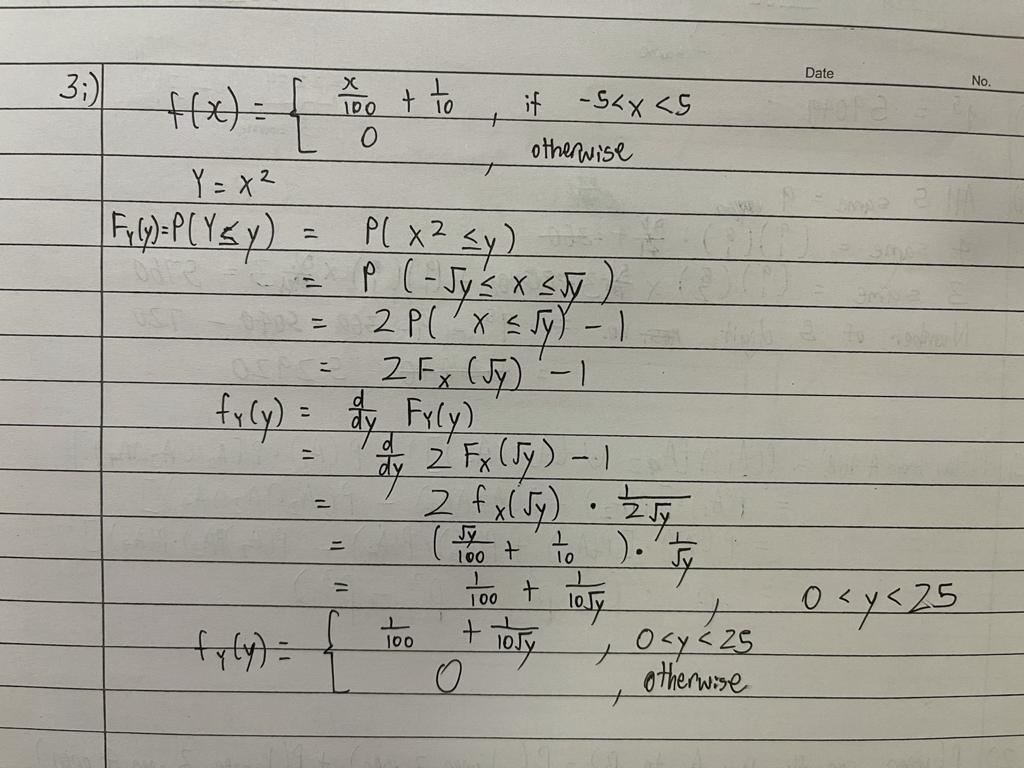 Date No.
3i) f(x) = { x/100 + 1/10 , if -5<x<5
0 , otherwise
Y = x²
F_Y(y)=P(Y≤y) = P( x² ≤y)
= P (-√y ≤ x ≤√y )
= 2 P( x ≤ √y) - 1
= 2 F_x (√y) - 1
f_Y(y) = d/dy F_Y(y)
= d/dy 2 F_x (√y) - 1
= 2 f_x(√y) · 1/2√y
= (√y/100 + 1/10 ) · 1/√y
= 1/100 + 1/10√y , 0 < y < 25
f_Y(y) = { 1/100 + 1/10√y , 0<y<25
0 , otherwise